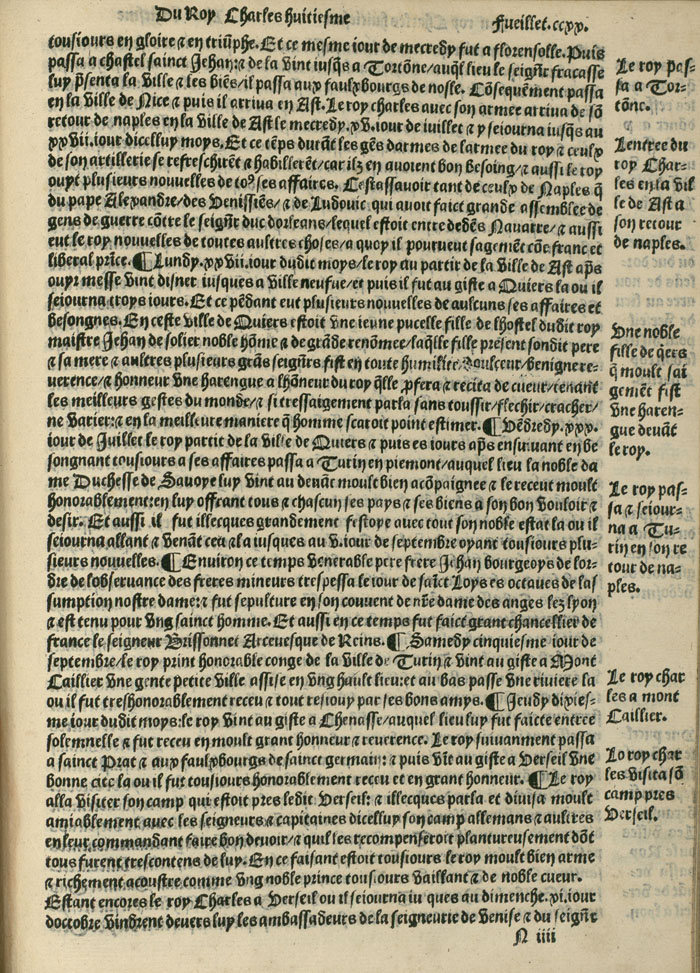 Du Roy Charles huitiesme
Fueillet. ccxx.
tousiours en gloire ⁊ en triũphe. Et ce mesme iour de mecredy fut a florensolle. Puis
passa a chastel sainct Jehan: ⁊ de la vint iusqs a Tortõne/ auq̃l lieu le seignr̃ fracasse
luy p̃senta la ville ⁊ les biẽs/ il passa aux faulxbourgs de nosle. Cõsequẽment passa
en la ville de Nice ⁊ puis il arriva en Ast. Le roy charles avec son armee arriva de sõ
retour de naples en la ville de Ast le mecredy. xv. iour de iuillet ⁊ y seiourna iusqs au
xxvii. iour dicelluy moys. Et ce tẽps durãt les gẽs darmes de larmee du roy ⁊ ceulx
de son artillerie se refreschirẽt ⁊ habillerẽt/ car ilz en avoient bon besoing/ ⁊ aussi le roy
ouyt plusieurs nouvelles de to⁹ ses affaires. Cestassavoir tant de ceulx de Naples q̃
du pape Alexandre/ des Venissiẽs/ ⁊ de Ludovic qui avoit faict grande assemblee de
gens de guerre cõtre le seignr̃ duc dorleans/ lequel estoit entre dedẽs Navarre/ ⁊ aussi
eut le roy nouvelles de toutes aultres choses/ a quoy il pourveut sagemẽt cõe franc et
liberal prĩce. ¶ Lundy. xxvii. iour dudit moys/ le roy au partir de la ville de Ast ap̃s
ouyr messe vint disner iusques a ville neufve/ et puis il fut au giste a Quiers la ou il
seiourna troys iours. Et ce pẽdant eut plusieurs nouvelles de aulcuns ses affaires et
besongnes. En ceste ville de Quiers estoit vne ieune pucelle fille de lhostel dudit roy
maistre Jehan de solier noble hõme ⁊ de grãde renõmee/ laq̃lle fille present sondit pere
⁊ sa mere ⁊ aultres plusieurs grãs seignr̃s fist en toute humilite/ doulceur/ benigne re-
verence/ ⁊ honneur vne harengue a lhõneur du roy q̃lle p̃fera ⁊ recita de cueur/ tenant
les meilleurs gestes du monde/ ⁊ si tressaigement parla sans toussir/ flechir/ cracher/
ne varier: ⁊ en la meilleure maniere q̃ homme scaroit point estimer. ¶ Vẽdredy. xxx.
iour de Juillet le roy partit de la ville de Quiers ⁊ puis es iours ap̃s ensuyvant en be
songnant tousiours a ses affaires passa a Turin en piemont/ auquel lieu la noble da
me Duchesse de Savoye luy vint au devãt moult bien acõpaignee ⁊ le receut moult
honorablement: en luy offrant tous ⁊ chascun ses pays ⁊ ses biens a son bon vouloir ⁊
desir. Et aussi il fut illecques grandement festoye avec tout son noble estat la ou il
seiourna allant ⁊ venãt ceca ⁊ la iusques au v. iour de septembre oyant tousiours plu-
sieurs nouvelles. ¶ Environ ce temps venerable pere frere Jehan bourgeoys de lor-
dre de lobservance des freres mineurs trespassa le iour de saĩct Loys es octaves de las
sumption nostre dame: ⁊ fut sepulture en son couvent de nr̃e dame des anges lez lyon
⁊ est tenu pour vng sainct homme. Et aussi en ce temps fut faict grant chancellier de
france le seigneur Brissonnet Arcevesque de Reins. ¶ Samedy cinquiesme iour de
septembre/ le roy print honorable conge de la ville de Turin ⁊ vint au giste a Mont
Caillier vne gente petite ville assise en vng hault lieu: et au bas passe vne riviere la
ou il fut treshonorablement receu ⁊ tout resiouy par ses bons amys. ¶ Jeudy dixies-
me iour dudit moys: le roy vint au giste a Chenasse/ auquel lieu luy fut faicte entree
solemnelle ⁊ fut receu en moult grant honneur ⁊ reverence. Le roy suivanment passa
a sainct Prat ⁊ aux faulxbourgs de sainct germain: ⁊ puis vĩt au giste a Verseil vne
bonne cite la ou il fut tousiours honorablement receu et en grant honneur. ¶ Le roy
alla visiter son camp qui estoit pres ledit Verseil: ⁊ illecques parla et divisa moult
amiablement avec les seigneurs ⁊ capitaines dicelluy son camp allemans ⁊ aultres
en leur commandant faire bon devoir/ ⁊ quil les recompenseroit plantureusement dõt
tous furent trescontens de luy. En ce faisant estoit tousiours le roy moult bien arme
⁊ richement acoustre comme vng noble prince tousiours vaillant ⁊ de noble cueur.
Estant encores le roy Charles a Verseil ou il seiourna iusques au dimenche. xi. iour
doctobre vindrent devers luy les ambassadeurs de la seigneurie de Venise ⁊ du seignr̃
N iiii
Le roy pas-
sa a Tor-
tõne.
Lentree du
roy Char-
les en la vil
le de Ast a
son retour
de naples.
Vne noble
fille de q̃ers
q̃ moult sai
gemẽt fist
vne haren-
gue devãt
le roy.
Le roy pas-
sa ⁊ seiour-
na a Tu-
rin en son re
tour de na-
ples.
Le roy char
les a mont
Caillier.
Lo roy char
les visita sõ
camp pres
Verseil.